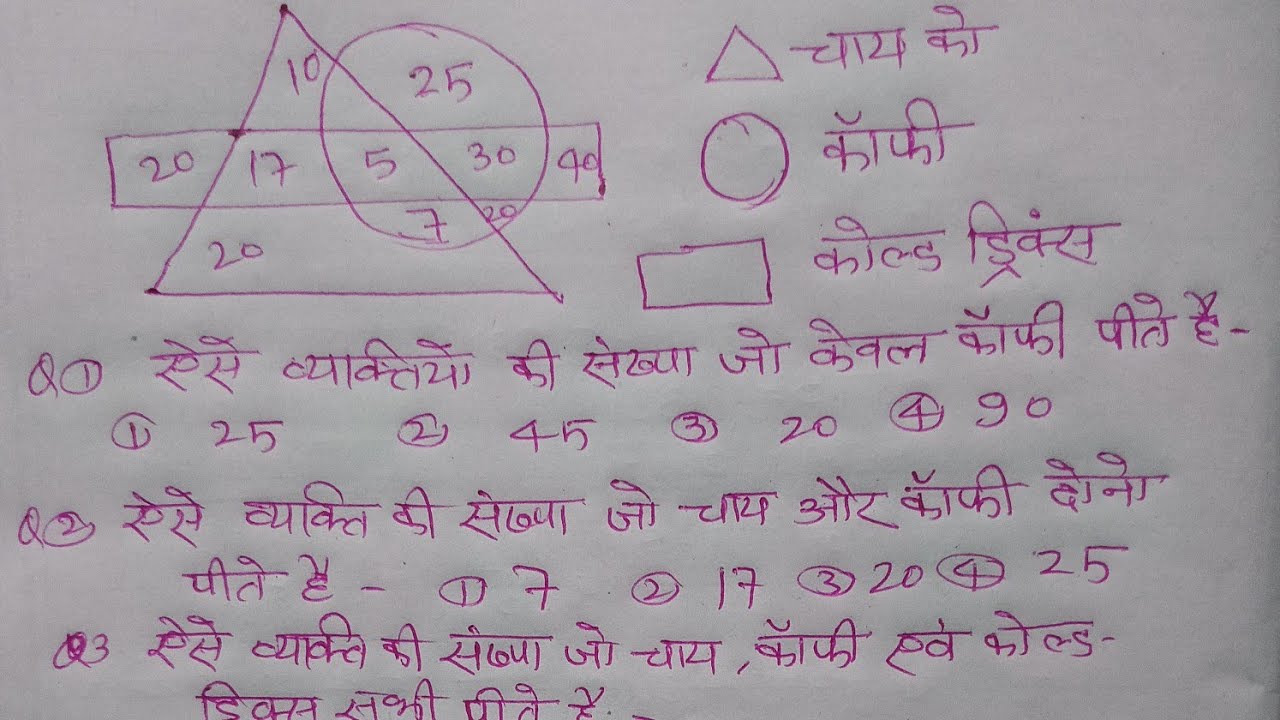 10 25 △ - चाय को
20 17 5 30 40 ○ कॉफी
7 20
20 कोल्ड ड्रिंक्स
Q① ऐसें व्यक्तियों की संख्या जो केवल कॉफी पीते है -
① 25 ② 45 ③ 20 ④ 90
Q② ऐसें व्यक्ति की संख्या जो चाय और कॉफी दोनो
पीते है - ① 7 ② 17 ③ 20 ④ 25
Q3 ऐसे व्यक्ति की संख्या जो चाय, कॉफी एवं कोल्ड-
ड्रिंक्स सभी पीते है -